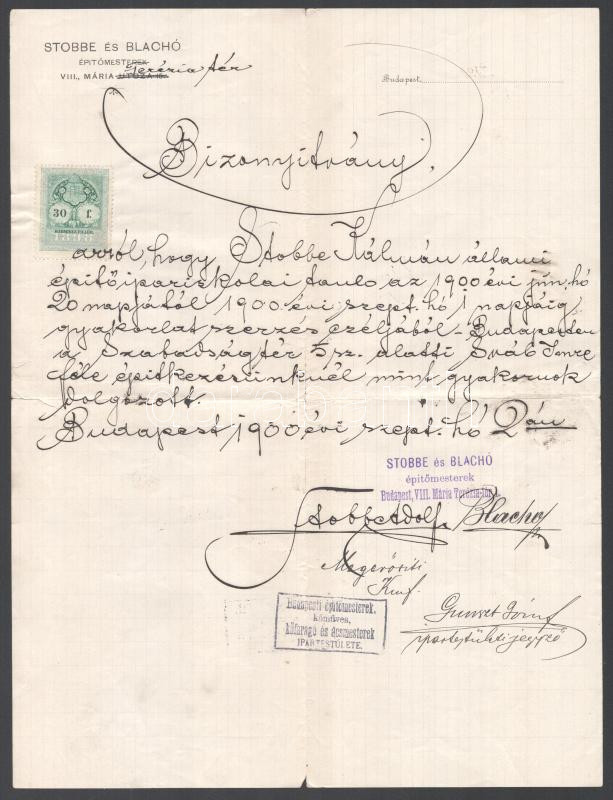 STOBBE ÉS BLACHÓ
ÉPITŐMESTEREK
VIII., MÁRIA UTCZA 15. Terézia tér
Budapest,
Bizonyitvány.
30 f.
arról, hogy Stobbe Kálmán állami
épitőipariskolai tanlo az 1900 évi jun. hó
20 napjától 1900. évi szept. hó 1 napjáig
gyakorlat szerzes czéljából - Budapesten
a Szabadságtér 5 sz. alatti Sváb Imre
féle épitkezésünknél mint gyakornok
dolgozott.
Budapest 1900 évi szept. hó 2 án
STOBBE és BLACHÓ
épitőmesterek
Budapest, VIII. Mária Terézia-tér
Stobbe Adolf. Blachó
Megerősiti
ipartestületi jegyző
Budapesti épitőmesterek,
kőmüves,
kőfaragó és ácsmesterek
IPARTESTÜLETE.